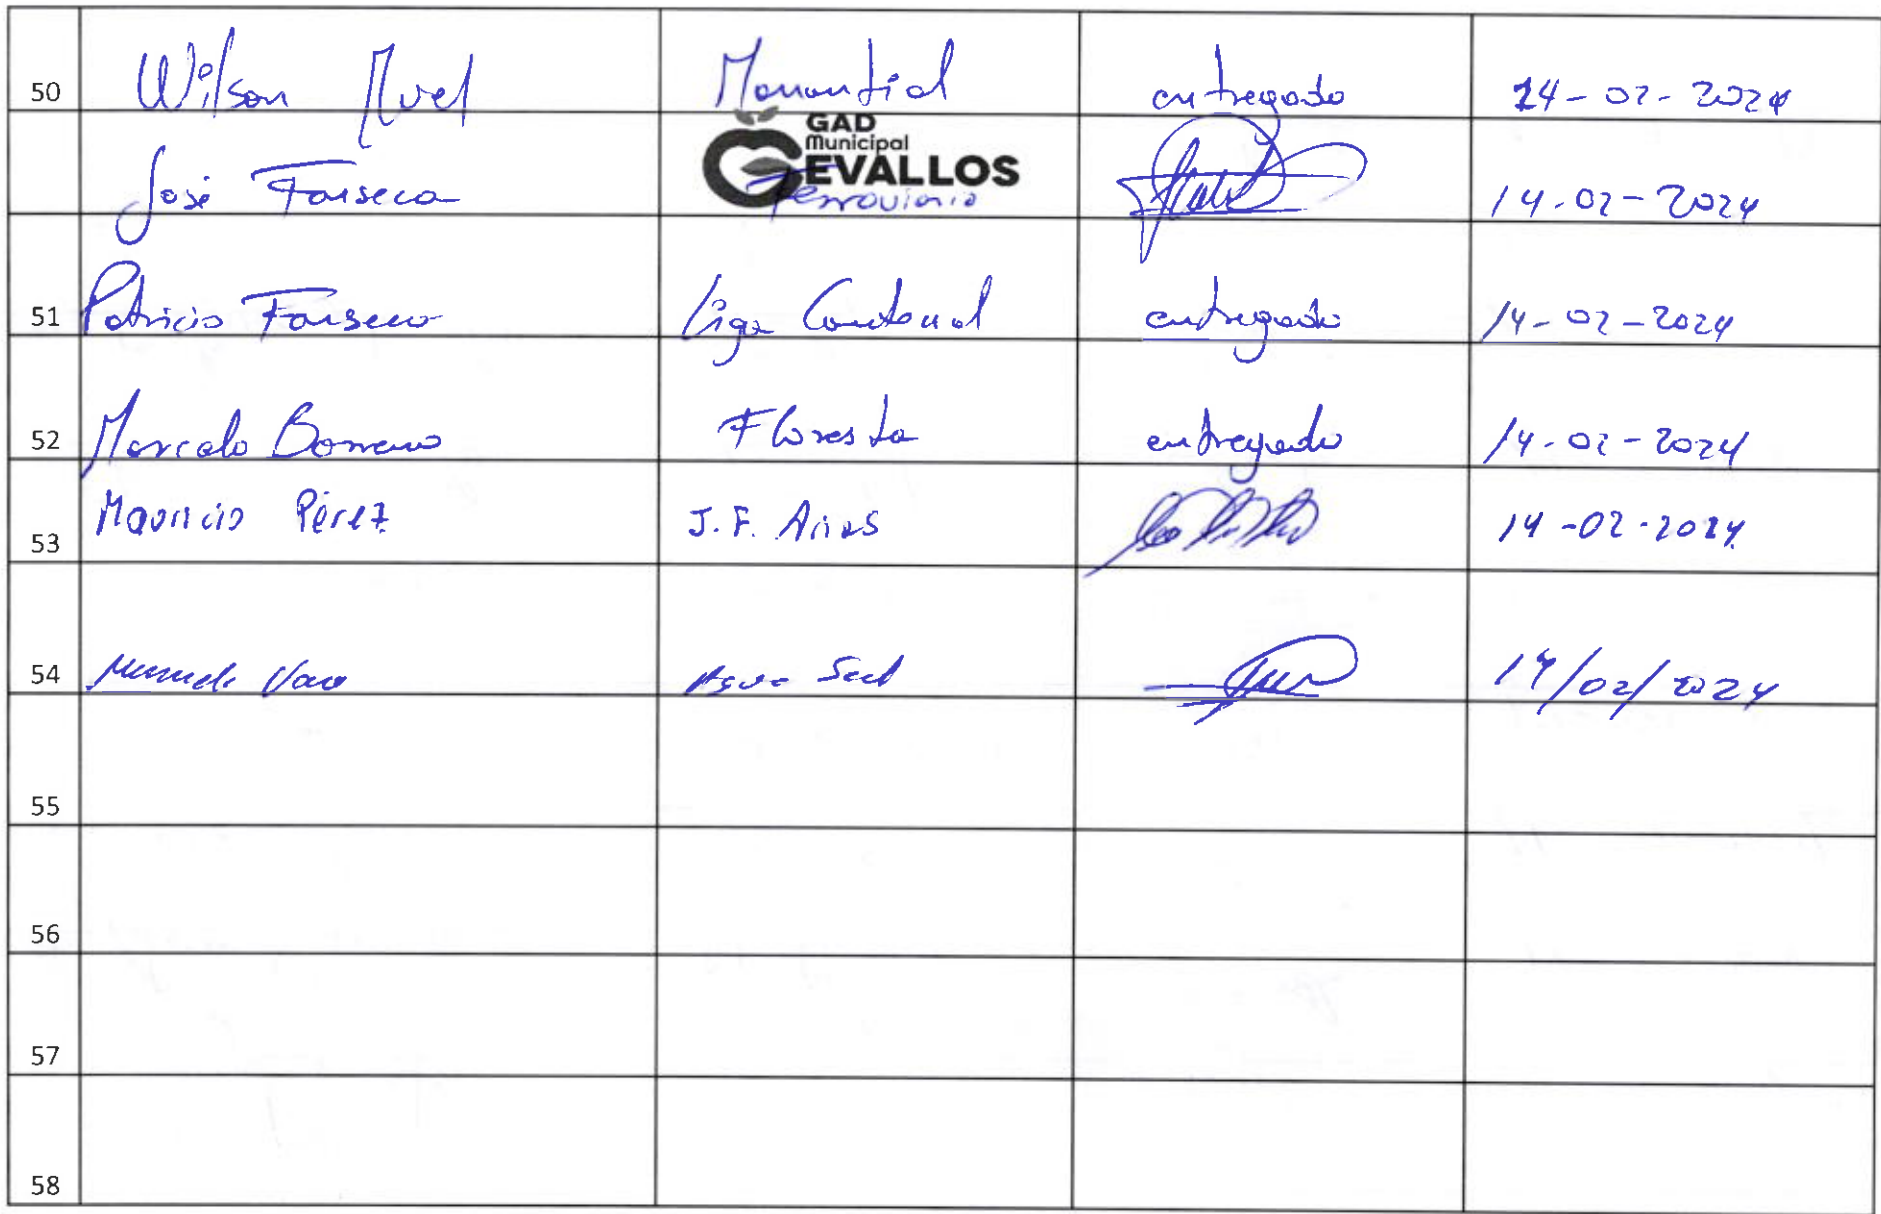 50 Wilson Muel Manantial entregado 14-02-2024
GAD
Municipal
CEVALLOS
José Fonseca Ferroviario 14-02-2024
51 Patricio Fonseca Liga Cantonal entregado 14-02-2024
52 Marcelo Borrero Floresta entregado 14-02-2024
53 Mauricio Pérez J.F. Arias 14-02-2024
54 14/02/2024
55
56
57
58